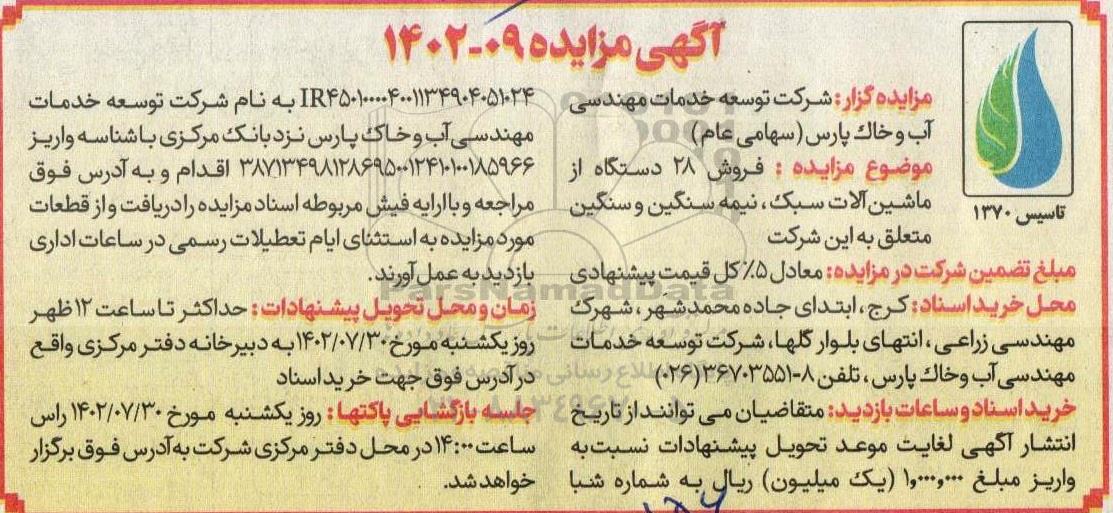 آگهی مزایده ۰۹-۱۴۰۲
تاسیس ۱۳۷۰
مزایده گزار: شرکت توسعه خدمات مهندسی
آب و خاک پارس (سهامی عام)
موضوع مزایده : فروش ۲۸ دستگاه از
ماشین آلات سبک ، نیمه سنگین و سنگین
متعلق به این شرکت
مبلغ تضمین شرکت در مزایده: معادل ۵٪ کل قیمت پیشنهادی
محل خرید اسناد: کرج ، ابتدای جاده محمدشهر ، شهرک
مهندسی زراعی ، انتهای بلوار گلها، شرکت توسعه خدمات
مهندسی آب و خاک پارس ، تلفن ۸-۳۶۷۰۳۵۵۱(۰۲۶)
خرید اسناد و ساعات بازدید: متقاضیان می توانند از تاریخ
انتشار آگهی لغایت موعد تحویل پیشنهادات نسبت به
واریز مبلغ ۱,۰۰۰,۰۰۰ (یک میلیون) ریال به شماره شبا
IR۴۵۰۱۰۰۰۰۴۰۰۱۱۳۴۹۰۴۰۵۱۰۲۴ به نام شرکت توسعه خدمات
مهندسی آب و خاک پارس نزد بانک مرکزی با شناسه واریز
۳۸۷۱۳۴۹۸۱۲۸۶۹۵۰۰۱۲۴۱۰۱۰۰۱۸۵۹۶۶ اقدام و به آدرس فوق
مراجعه و با ارایه فیش مربوطه اسناد مزایده را دریافت و از قطعات
مورد مزایده به استثنای ایام تعطیلات رسمی در ساعات اداری
بازدید به عمل آورند.
زمان و محل تحویل پیشنهادات : حداکثر تا ساعت ۱۲ ظهر
روز یکشنبه مورخ ۱۴۰۲/۰۷/۳۰ به دبیرخانه دفتر مرکزی واقع
در آدرس فوق جهت خرید اسناد
جلسه بازگشایی پاکتها : روز یکشنبه مورخ ۱۴۰۲/۰۷/۳۰ راس
ساعت ۱۴:۰۰ در محل دفتر مرکزی شرکت به آدرس فوق برگزار
خواهد شد.
ParsNamadData